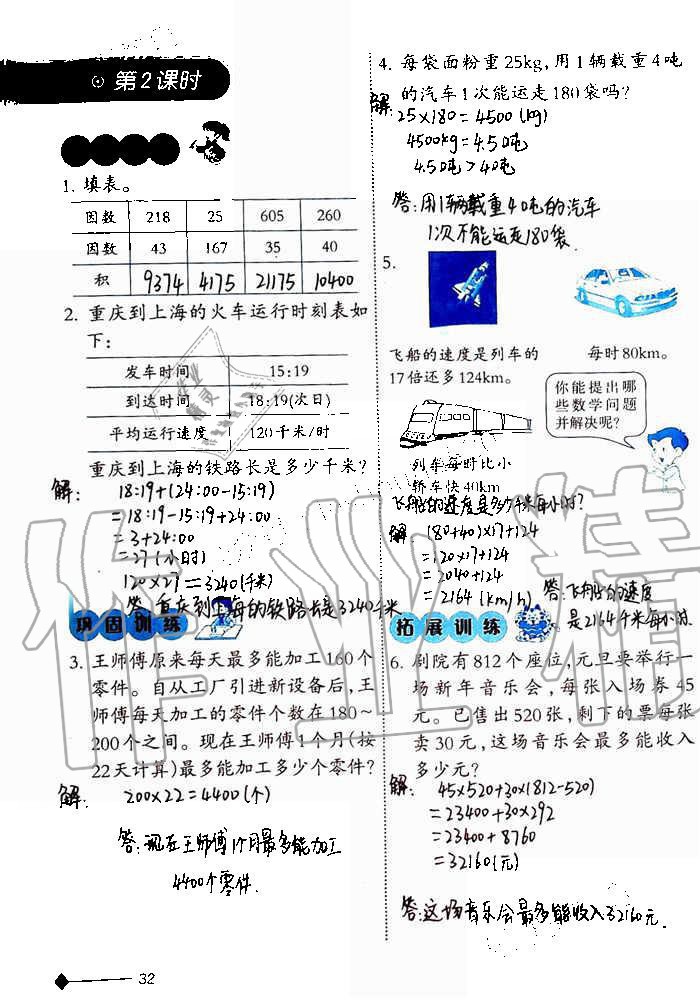 第2课时
1. 填表。
因数 218 25 605 260
因数 43 167 35 40
积 9374 4175 21175 10400
2. 重庆到上海的火车运行时刻表如
下：
发车时间 15:19
到达时间 18:19(次日)
平均运行速度 120千米/时
重庆到上海的铁路长是多少千米？
解: 18:19+(24:00-15:19)
=18:19-15:19+24:00
=3+24:00
=27(小时)
120×27=3240(千米)
答:重庆到上海的铁路长是3240千米
巩固训练
3. 王师傅原来每天最多能加工160个
零件。自从工厂引进新设备后，王
师傅每天加工的零件个数在180～
200个之间。现在王师傅1个月(按
22天计算)最多能加工多少个零件？
解: 200×22=4400(个)
答:现在王师傅1个月最多能加工
4400个零件.
32
4. 每袋面粉重25kg，用1辆载重4吨
的汽车1次能运走180袋吗？
解: 25×180=4500(kg)
4500kg=4.5吨
4.5吨>4吨
答:用1辆载重4吨的汽车
1次不能运走180袋.
5.
飞船的速度是列车的
17倍还多124km。
每时80km。
你能提出哪
些数学问题
并解决呢？
列车每时比小
轿车快40km
飞船的速度是多少千米每小时?
解 (80+40)×17+124
=120×17+124
=2040+124
=2164(km/h)
答:飞船的速度
是2164千米每小时.
拓展训练
6. 剧院有812个座位，元旦要举行一
场新年音乐会，每张入场券45
元。已售出520张，剩下的票每张
卖30元，这场音乐会最多能收入
多少元？
解: 45×520+30×(812-520)
=23400+30×292
=23400+8760
=32160(元)
答:这场音乐会最多能收入32160元.
作业精灵